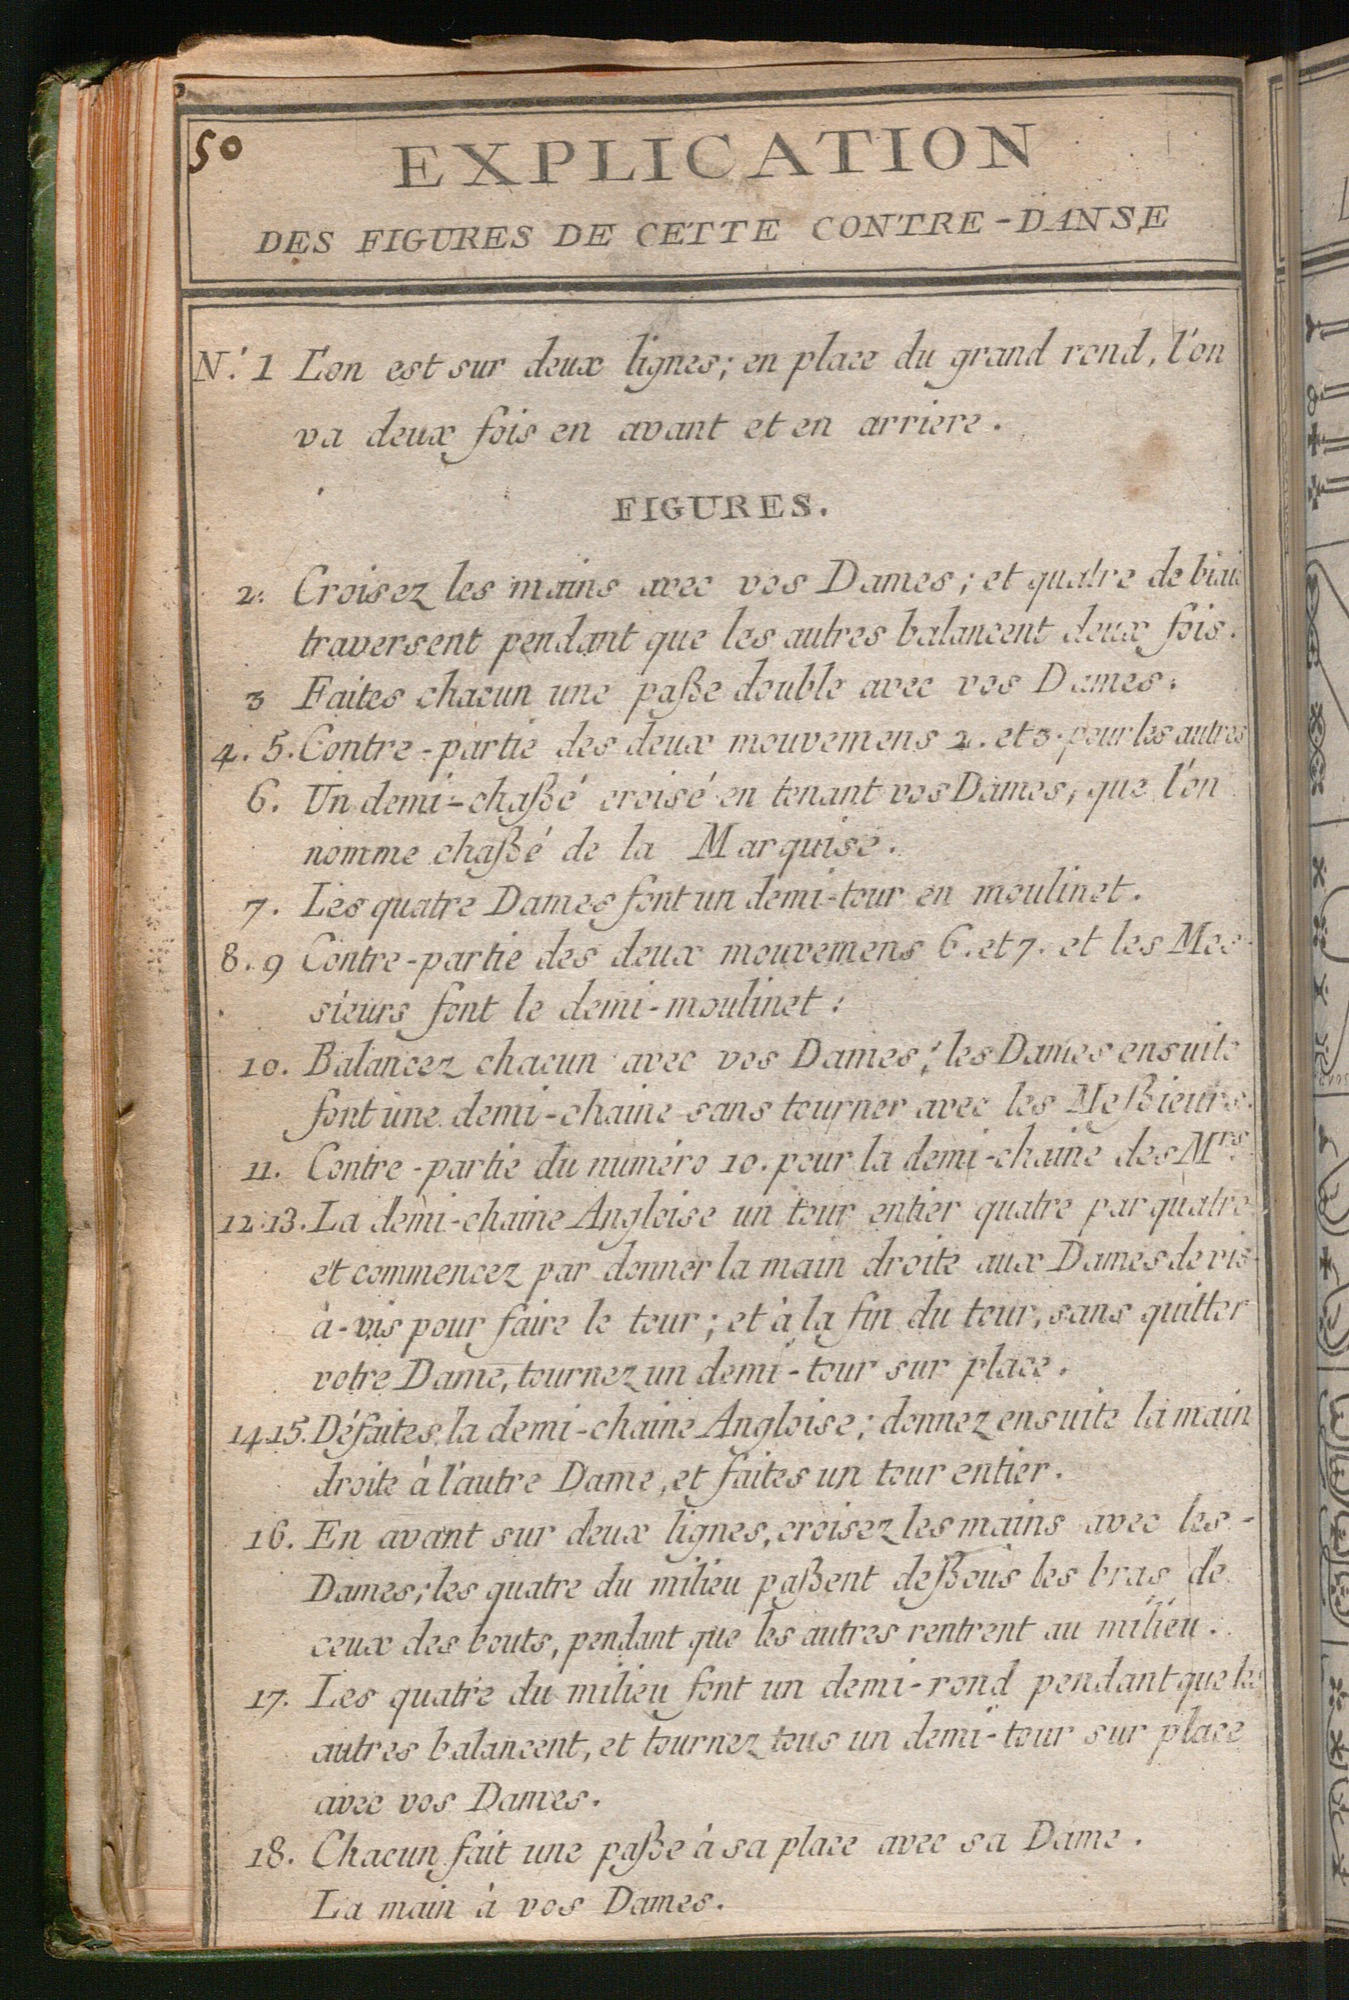 50
EXPLICATION
DES FIGURES DE CETTE CONTRE-DANSE
N.° 1 L'on est sur deux lignes; en place du grand rond, l'on
va deux fois en avant et en arriere.
FIGURES.
2. Croisez les mains avec vos Dames; et quatre de biais
traversent pendant que les autres balancent deux fois.
3 Faites chacun une paße double avec vos Dames.
4. 5. Contre-partie des deux mouvemens 2. et 3. pour les autres
6. Un demi-chaßé croisé en tenant vos Dames, que l'on
nomme chaßé de la Marquise.
7. Les quatre Dames font un demi-tour en moulinet.
8. 9 Contre-partie des deux mouvemens 6. et 7. et les Mes-
sieurs font le demi-moulinet.
10. Balancez chacun avec vos Dames; les Dames ensuite
font une demi-chaine sans tourner avec les Meßieurs.
11. Contre-partie du numéro 10. pour la demi-chaine des Mrs.
12.13. La demi-chaine Angloise un tour entier quatre par quatre
et commencez par donner la main droite aux Dames de vis-
à-vis pour faire le tour; et à la fin du tour, sans quitter
votre Dame, tournez un demi-tour sur place.
14.15. Défaites la demi-chaine Angloise; donnez ensuite la main
droite à l'autre Dame, et faites un tour entier.
16. En avant sur deux lignes, croisez les mains avec les-
Dames; les quatre du milieu paßent deßous les bras de
ceux des bouts, pendant que les autres rentrent au milieu.
17. Les quatre du milieu font un demi-rond pendant que les
autres balancent, et tournez tous un demi-tour sur place
avec vos Dames.
18. Chacun fait une paße à sa place avec sa Dame.
La main à vos Dames.